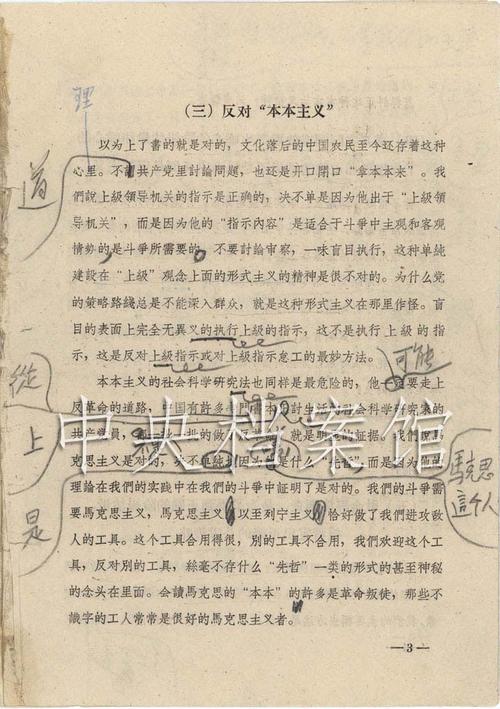 理
(三)反对“本本主义”
以为上了書的就是对的，文化落后的中国农民至今还存着这种
心里。不謂共产党里討論問題，也还是开口閉口“拿本本来”。我
們說上級领导机关的指示是正确的，决不单是因为他出于“上級领
导机关”，而是因为他的“指示內容”是适合于斗爭中主观和客观
情勢的是斗爭所需要的。不要討論审察，一味盲目执行，这种单純
建設在“上級”观念上面的形式主义的精神是很不对的。为什么党
的策略路綫总是不能深入群众，就是这种形式主义在那里作怪。盲
目的表面上完全无異义的执行上級的指示，这不是执行上級的指
示，这是反对上級指示或对上級指示怠工的最妙方法。
可能
本本主义的社会科学研究法也同样是最危险的，他 要走上
反革命的道路，中国有許多 門 本本 討生活 社会科学研究 的
共产党員， 一批 的做 就是明 的証据。我們說馬
克思主义是对的，决不单純 因 是什么“先哲”而是因为他的
理論在我們的实踐中在我們的斗爭中証明了是对的。我們的斗爭需
要馬克思主义，馬克思主义 以至列宁主义 恰好做了我們进攻敌
人的工具。这个工具合用得很，別的工具不合用，我們欢迎这个工
具，反对別的工具，絲毫不存什么“先哲”一类的形式的甚至神秘
的念头在里面。会讀馬克思的“本本”的許多是革命叛徒，那些不
識字的工人常常是很好的馬克思主义者。
道
從
上
是
馬克思
這个人
中央档案馆
—3—